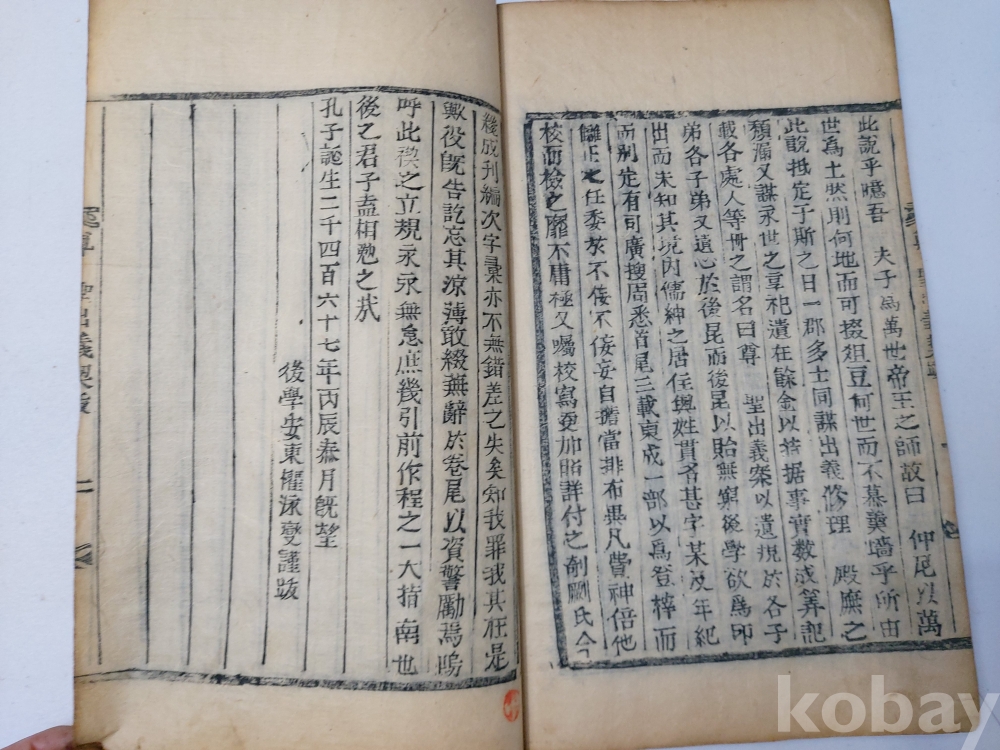 此說乎噫吾 夫子爲萬世帝王之師故曰 仲尼以萬
世爲土然則何地而可掇俎豆何世而不慕羹墻乎所由
此說抵定于斯之日一郡多士同謀出義修理 殿廡之
頹漏又謀永世之享祀遺在餘金以若据事實數成筭記
載各處人等冊之謂名曰尊 聖出義案以遺規於各子
弟各子弟又遺心於後昆而後昆以貽無窮後學欲爲印
出而未知其境內儒紳之居住與姓貫名甚字某及年紀
而別定有司廣搜周悉首尾三載東成一部以爲登梓而
讎正之任委於不佞不佞妄自擔當排布畢凡費神倍他
校而檢之靡不庸極又囑校寫更加昭詳付之剞劂氏今
纔成刊編次字彙亦不無錯差之失矣知我罪我其在是
歟役旣告訖忘其凉薄敢綴蕪辭於卷尾以資警勵焉嗚
呼此糢之立規永永無怠庶幾引前作程之一大指南也
後之君子盍相勉之哉
孔子誕生二千四百六十七年丙辰 月旣望
後學安東權泳燮謹跋
聖出義案跋 二
kobay